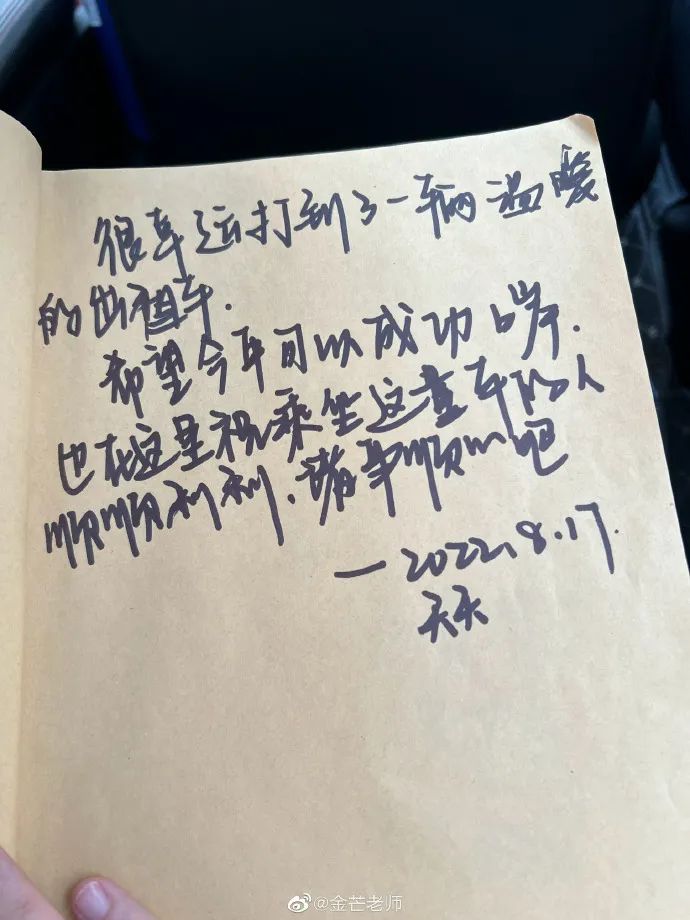 很幸运打到了一辆温暖
的出租车.
希望今年可以成功上岸.
也在这里祝乘坐这辆车的人
顺顺利利.诸事顺心吧
—2022.8.17.
天天
@金芒老师